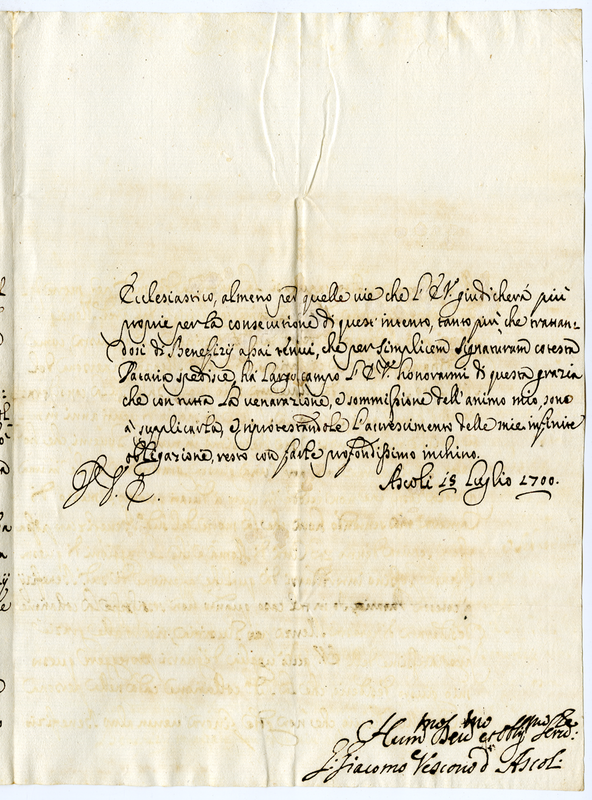 Ecclesiastico, almeno per quelle vie che L'E.V. giudicherà più
proprie per la consecutione di quest'intento, tanto più che trattan-
dosi di Benefizij assai tenui, che per simplicem signaturam cotesta
Dataria spedisce, hà largo campo l'E.V. honorarmi di questa grazia
che con tutta la venerazione, e sommissione dell'animo mio, sono
a supplicarla, e riprotestandole l'accrescimento delle mie infinite
obligazione, resto con farle profondissimo inchino.
Ascoli 18 Luglio 1700.
V. E.
Hum.mo Dev.mo et Obl.mo Serv.
Giacomo Vescovo d'Ascoli